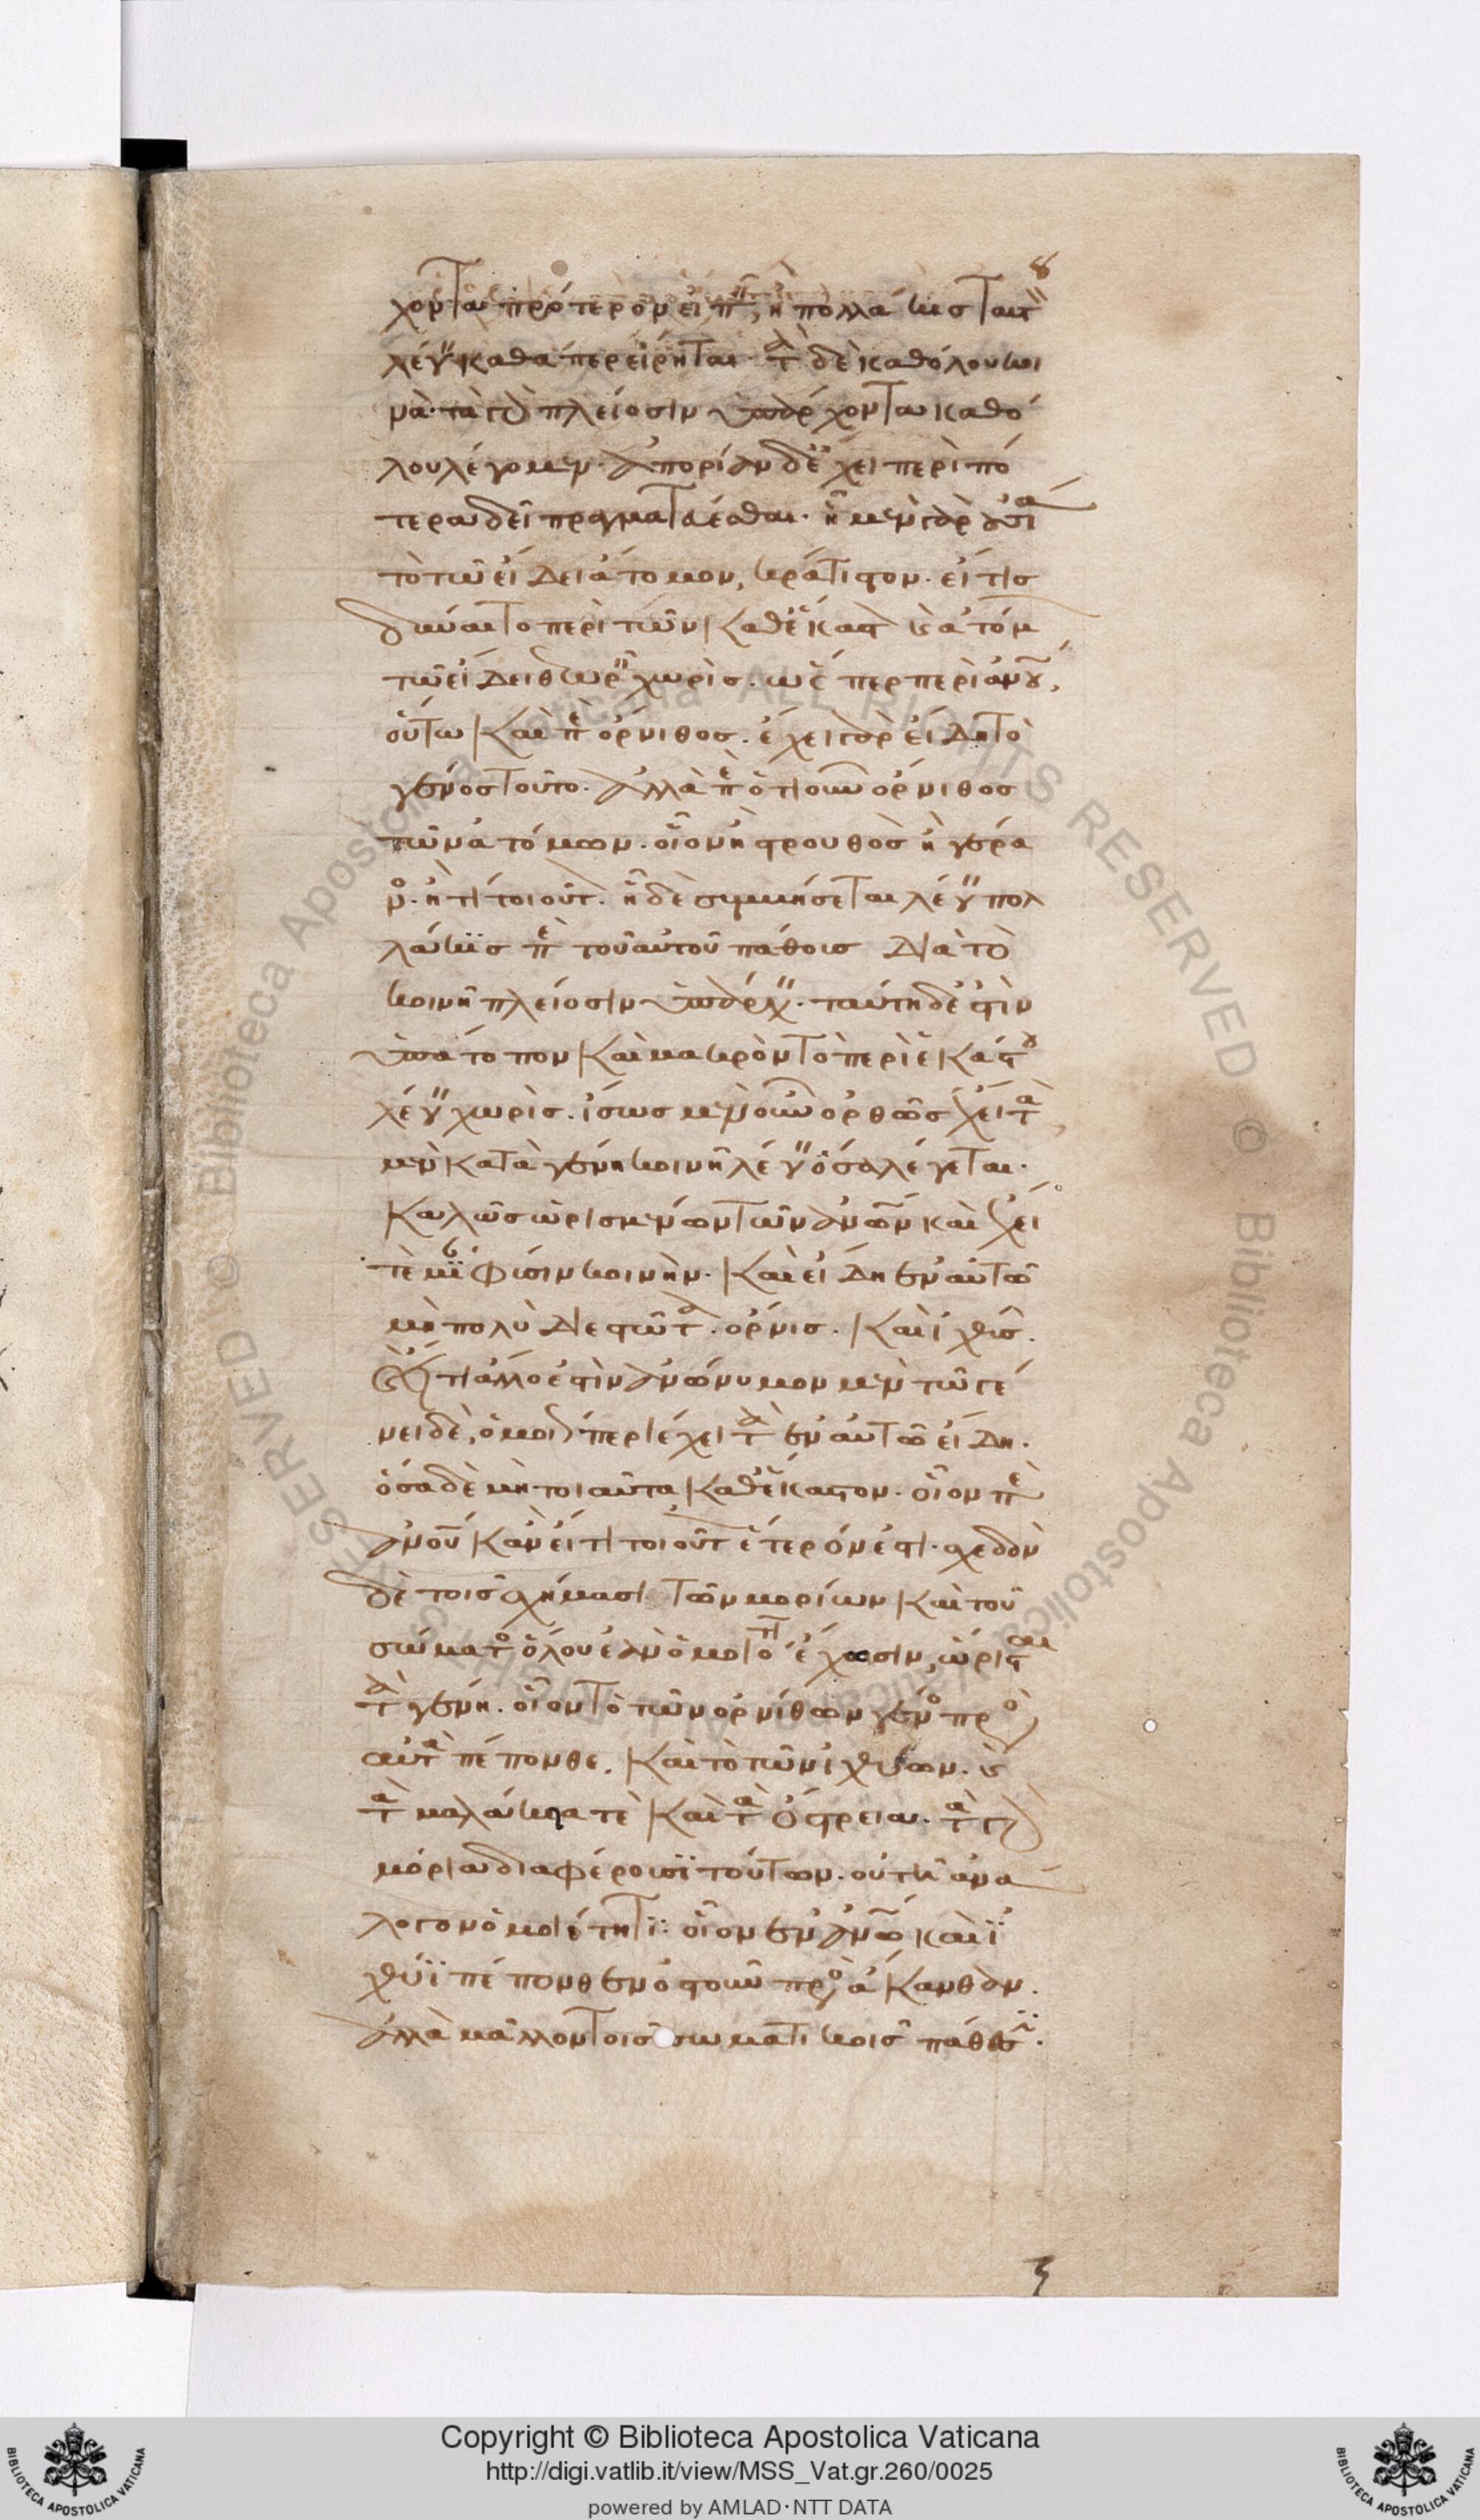 8
χοντα πρότερον εἰπεῖν, ἢ πολλάκις ταυτ
λέγειν καθάπερ εἴρηται· τὰ δὲ καθόλου κοι
νά· τὰ γὰρ πλείοσιν ὑπάρχοντα καθό
λου λέγομεν· ἀπορίαν δ' ἔχει περὶ πό
τερα δεῖ πραγματεύεσθαι· ἧ μὲν γὰρ οὐσία
τὸ τῶ εἴδει ἄτομον, κράτιστον· εἴ τις
δύναιτο περὶ τῶν καθ' ἕκαστ καὶ ἀτόμ
τῶ εἴδει θεωρεῖν χωρίς· ὥσπερ περὶ ἀνου,
οὕτω καὶ περὶ ὄρνιθος· ἔχει γὰρ εἴδη τὸ
γένος τοῦτο· ἀλλὰ περὶ ὁτουοῦν ὄρνιθος
τῶν ἀτόμων· οἷον ἢ στρουθὸς ἢ γέρα
νος· ἤ τι τοιοῦτ· ἧ δὲ συμβήσεται λέγειν πολ
λάκις περὶ τοῦ αὐτοῦ πάθους διὰ τὸ
κοινῆ πλείοσιν ὑπάρχειν· ταύτη δ' ἐστὶν
ὑπάτοπον καὶ μακρὸν τὸ περὶ ἑκάστου
λέγειν χωρίς· ἴσως μὲν οὖν ὀρθῶς ἔχει τὰ
μὲν κατὰ γένη κοινῆ λέγειν ὅσα λέγεται·
καλῶς ὡρισμένων τῶν ἀνων καὶ ἔχει
τὲ μίαν φύσιν κοινὴν· καὶ εἴδη ἐν αὐτῶ
μὴ πολὺ διεστῶτα· ὄρνις· καὶ ἰχθῦς·
καὶ εἴ τι ἄλλο ἐστὶν ἀνώνυμον μὲν τῶ γέ
νει δὲ, ὁμοίως περιέχει τὰ ἐν αὐτῶ εἴδη·
ὅσα δὲ μὴ τοιαῦτα καθ' ἕκαστον· οἷον περὶ
ἀνου κἂν εἴ τι τοιοῦτ ἕτερόν ἐστι· σχεδὸν
δὲ τοῖς σχήμασι τῶν μορίων καὶ τοῦ
σώματος ὅλου ἐὰν ὁμοιότητα ἔχωσιν, ὥρισται
τὰ γένη· οἷον τὸ τῶν ὀρνίθων γένος πρὸς
αὐτὰ πέπονθε· καὶ τὸ τῶν ἰχθύων· καὶ
τὰ μαλάκιά τε καὶ τὰ ὄστρεια· τὰ γὰρ
μόρια διαφέρουσι τούτων· οὐ τῆ ἀνα
λογον ὁμοιότητι: οἷον ἐν ἀνω καὶ ἰ
χθύϊ πέπονθεν ὀστοῦν πρὸς ἄκανθαν·
ἀλλὰ μᾶλλον τοῖς σωματικοῖς πάθεσι·
Copyright © Biblioteca Apostolica Vaticana
http://digi.vatlib.it/view/MSS_Vat.gr.260/0025
powered by AMLAD·NTT DATA